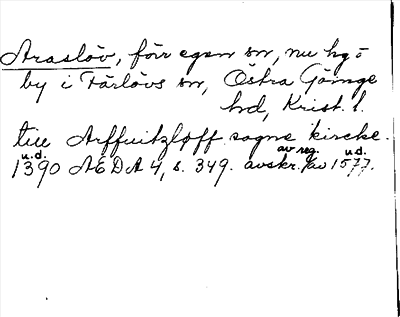 Araslöv, förr egen sn, nu kg=
by i Färlövs sn, Östra Göinge
hd, Krist. l.
till Arffuitzloff sogne kircke.
u.d. av reg. u.d.
1390 ÆDA 4, s. 349. avskr. av 1577.